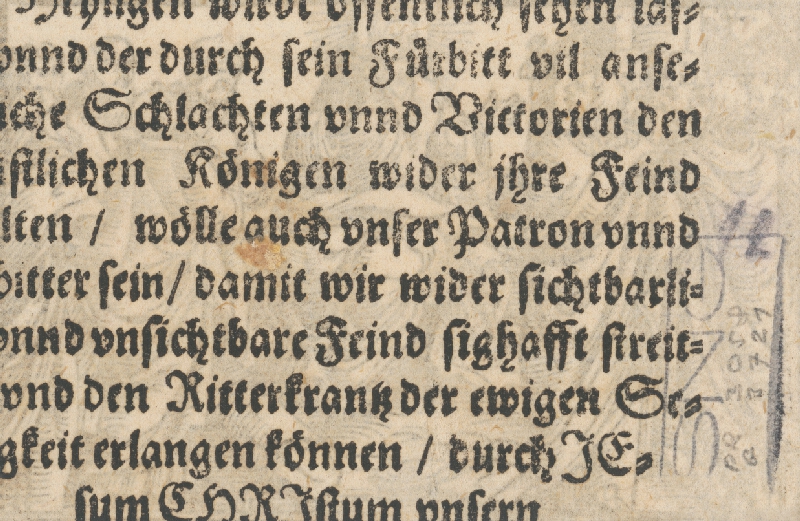 öffentlich sehen las=
vnnd der durch sein Fürbitt vil anse=
Schlachten vnnd Victorien den
Königen wider jhre Feind
/ wölle auch vnser Patron vnnd
bitter sein / damit wir wider sichtbarli=
vnnd vnsichtbare Feind sighafft streit=
vnd den Ritterkrantz der ewigen Se=
gkeit erlangen können / durch JE=
sum CHRIstum vnsern